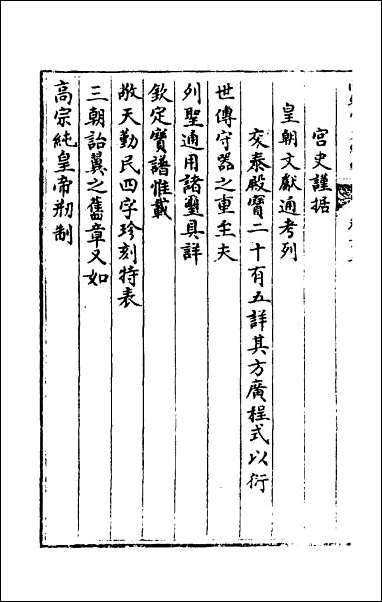 宫史謹据
皇朝文獻通考列
交泰殿寶二十有五詳其方廣程式以衍
世傳守器之重至夫
列聖通用諸璽具詳
欽定寶譜惟載
敬天勤民四字珍刻特表
三朝詒翼之舊章又如
高宗純皇帝剏制